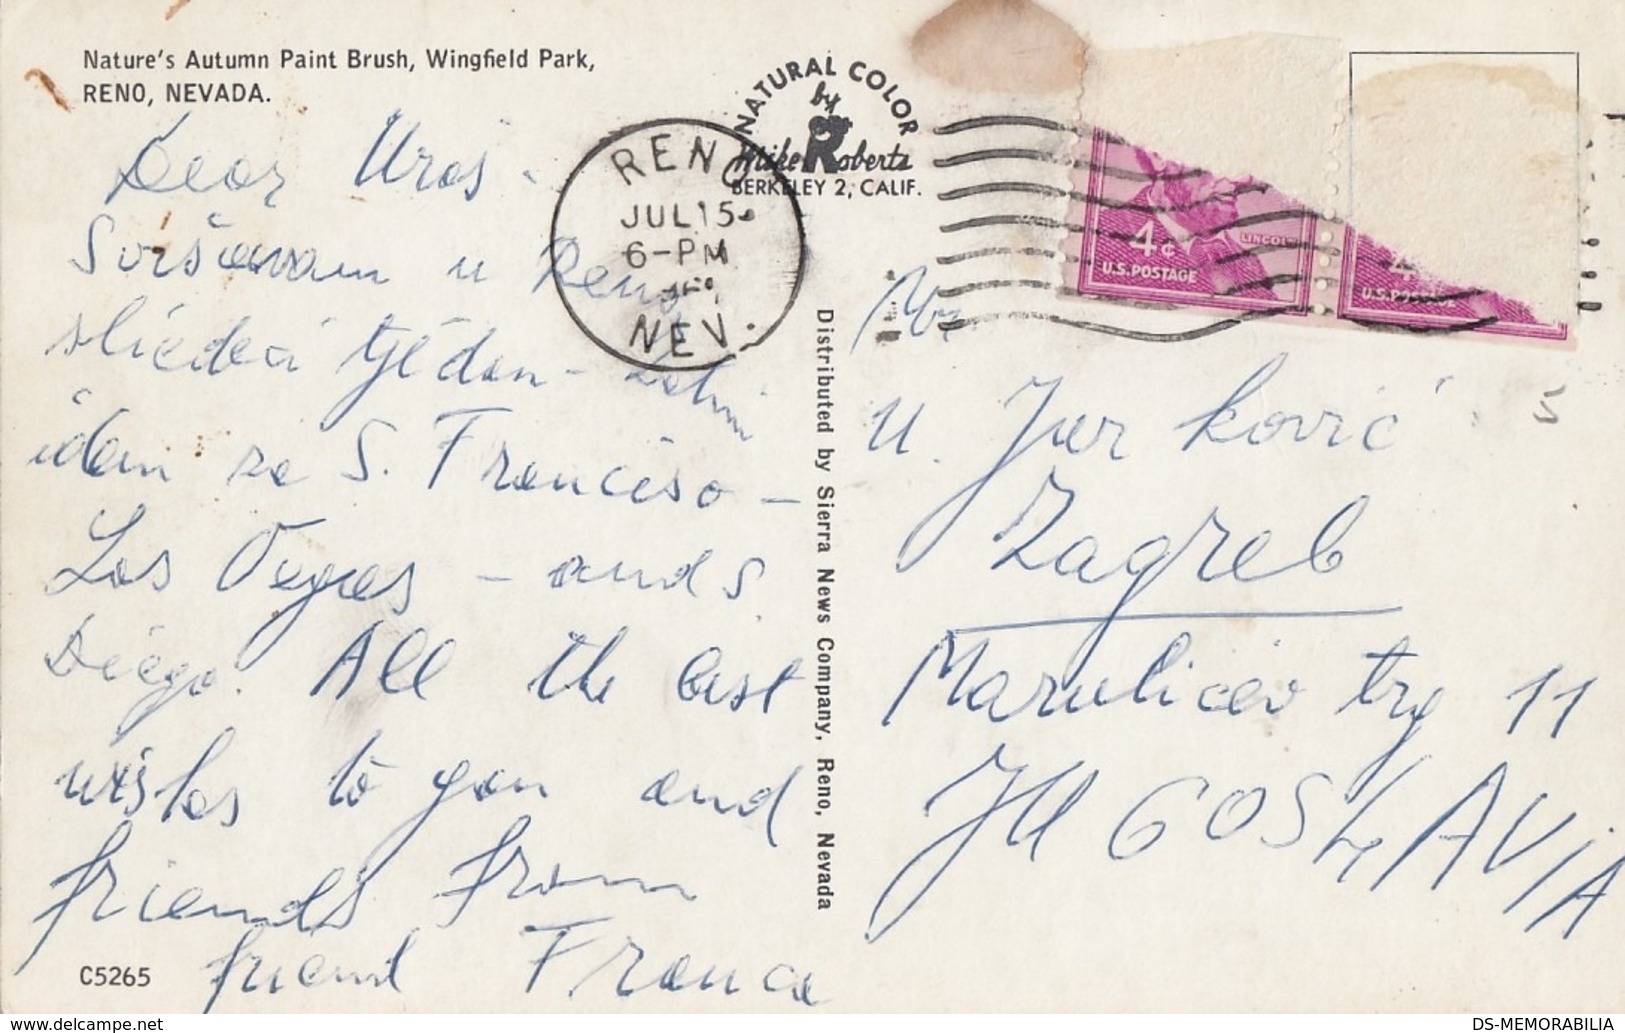 Nature's Autumn Paint Brush, Wingfield Park,
RENO, NEVADA.
NATURAL COLOR
by
Mike Roberts
BERKELEY 2, CALIF.
RENO
JUL 15
6-PM
NEV.
4¢
LINCOLN
U.S. POSTAGE
4
U.S. POSTAGE
Dear Uros.
Svršavam u Reno
sliedeći tjedan - Zatim
idem za S. Franciso -
Las Vegas - and S.
Diego. All the best
wishes to you and
friends from
friend France
C5265
Distributed by Sierra News Company, Reno, Nevada
Mr
U. Jurković
Zagreb
Marulićev trg 11
JUGOSLAVIA
DS-MEMORABILIA